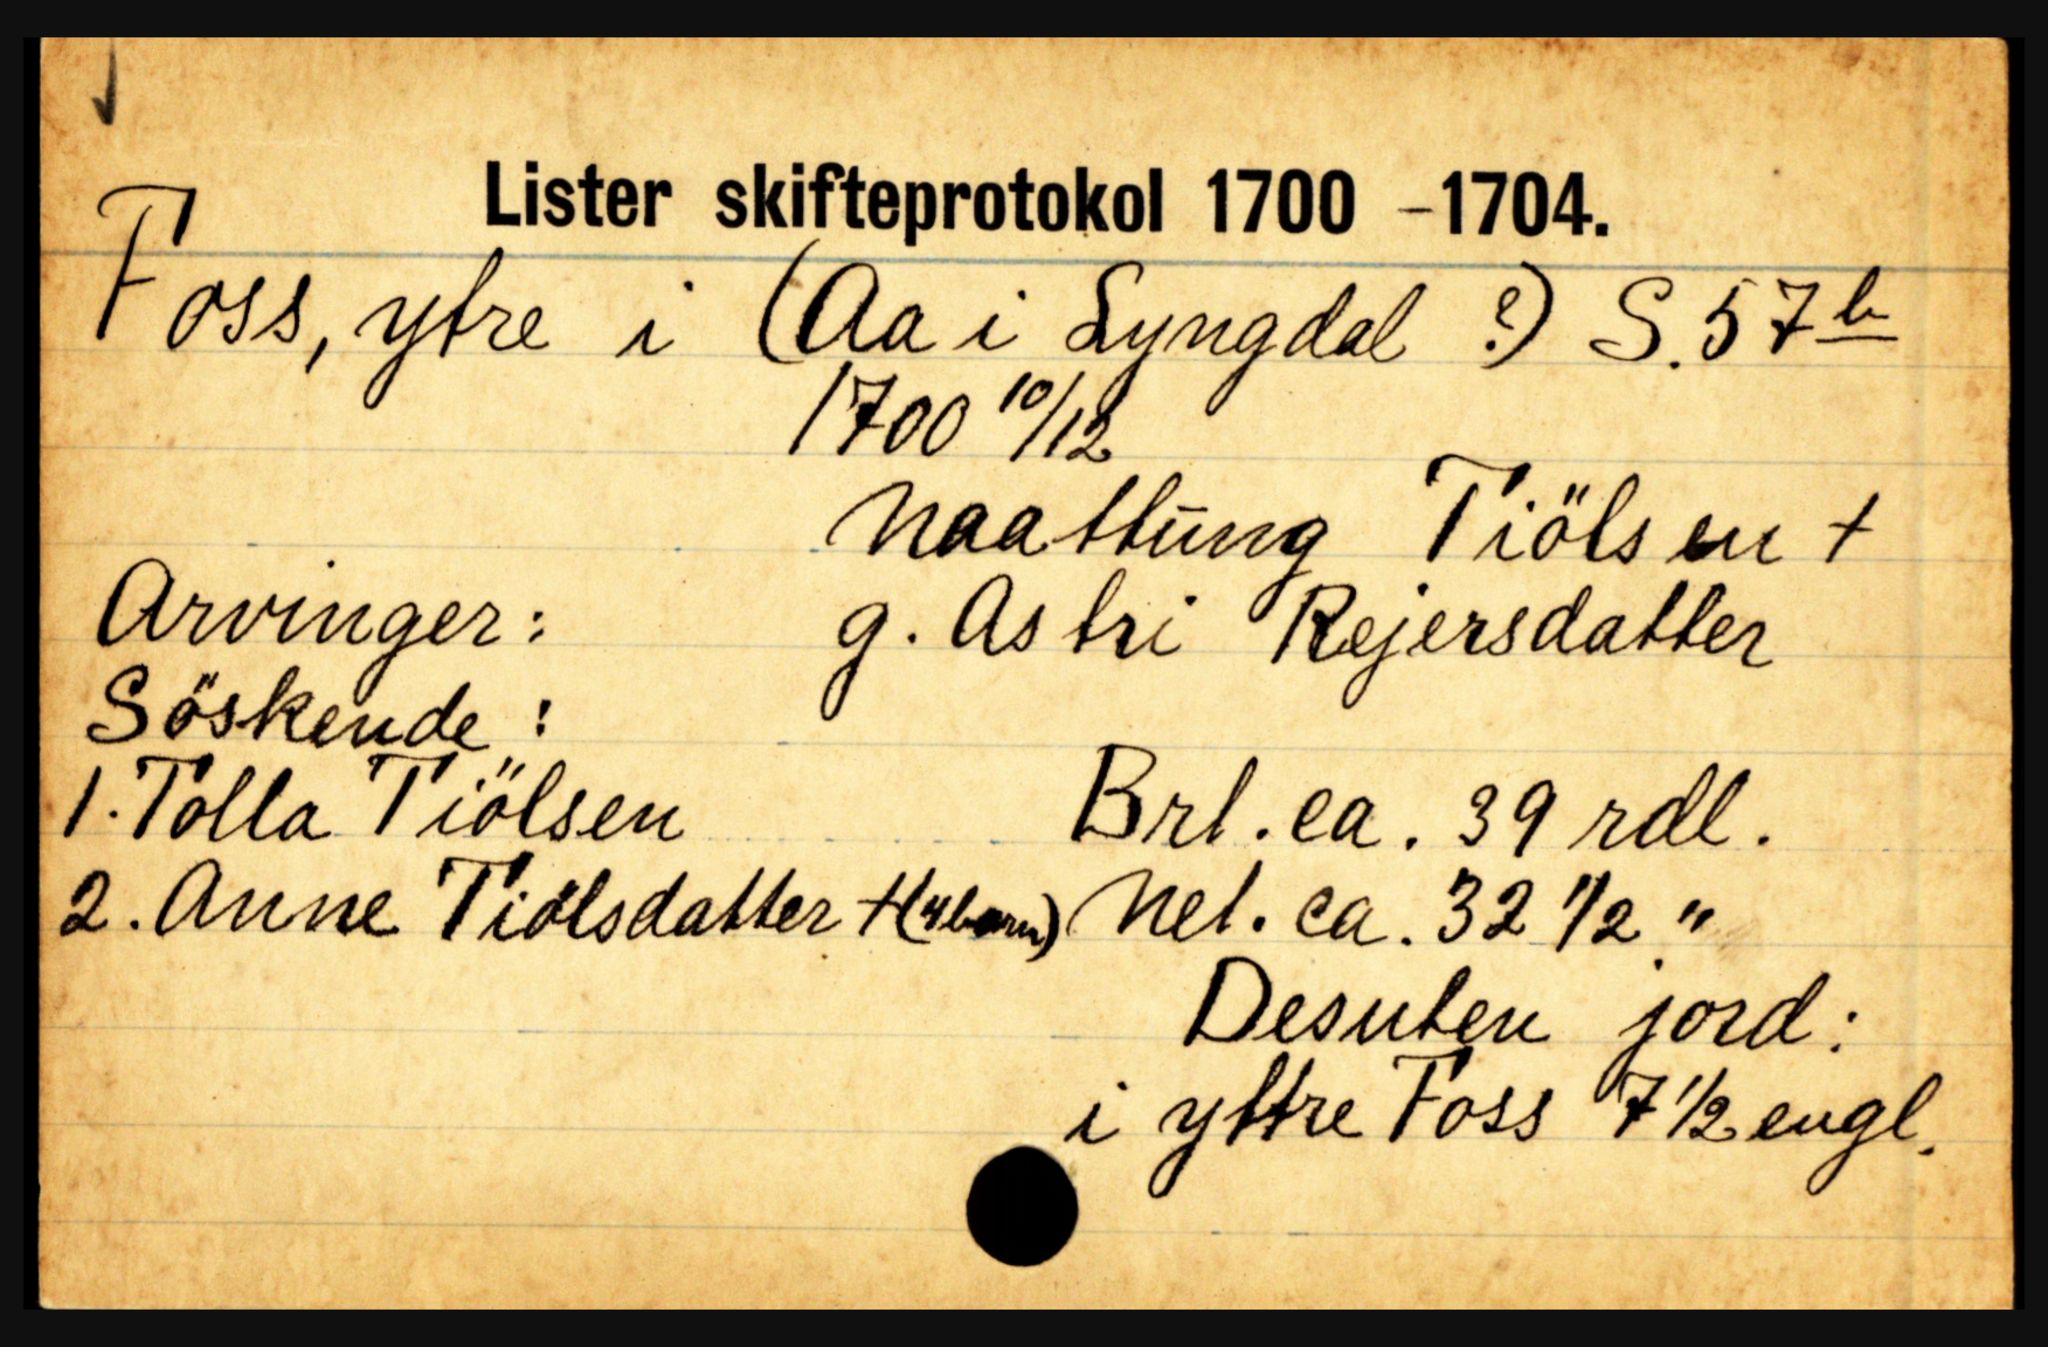 Lister skifteprotokol 1700 -1704.
Foss, ytre i (Aa i Lyngdal ?) S. 57 b
1700 10/12
Naattung Tiölsen +
Arvinger: g. Astri Rejersdatter
Söskende:
1. Tolla Tiölsen Brt. ca. 39 rdl.
2. Anne Tiölsdatter + (4 barn) Net. ca. 32 1/2 "
Desuten jord:
i yttre Foss 7 1/2 engl.